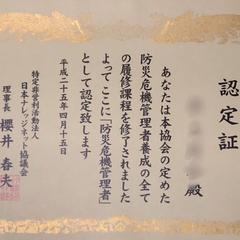 認定証
殿
あなたは本協会の定めた
防災危機管理者養成の全て
の履修課程を修了されました
よってここに「防災危機管理者」
として認定致します
平成二十五年四月十五日
特定非営利活動法人
日本ナレッジネット協議会
理事長 櫻井春夫